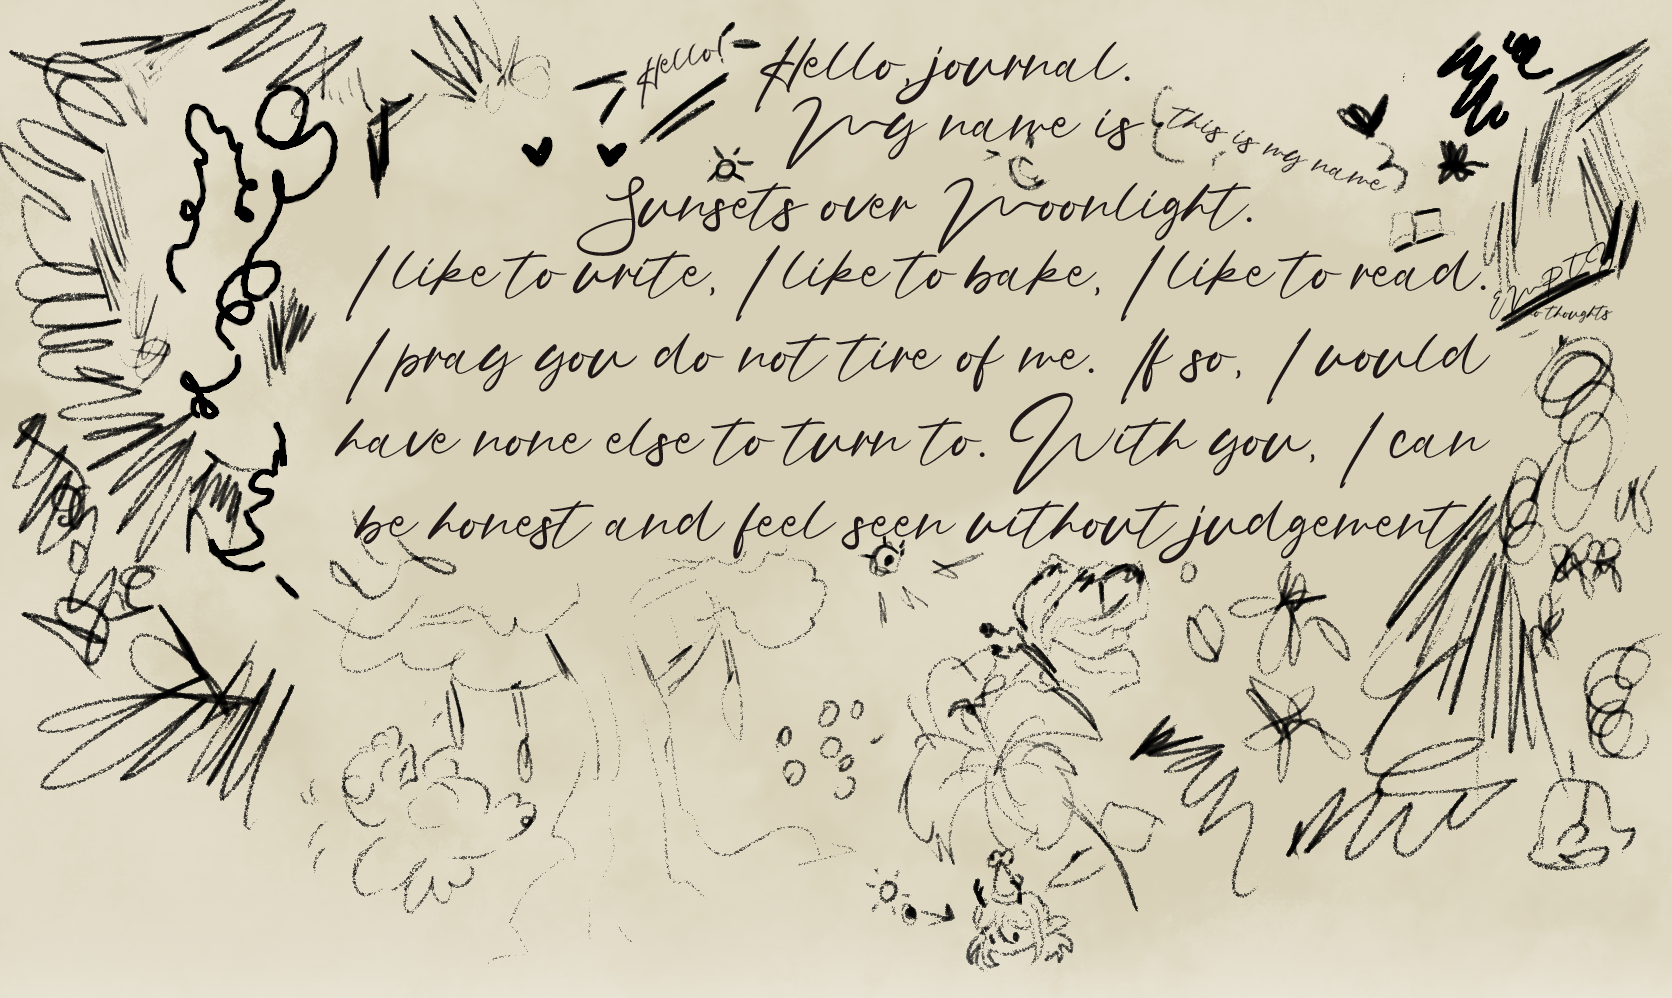 Hello!
Hello, journal.
My name is
{this is my name}
Sunsets over Moonlight.
I like to write, I like to bake, I like to read.
EMPTY
no thoughts
I pray you do not tire of me. If so, I would
have none else to turn to. With you, I can
be honest and feel seen without judgement